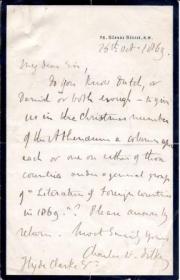 76, Sloane Street, S.W.
26th Oct. 1869.
My dear Sir,
Do you know Dutch, or
Danish or both enough to give
us in the Christmas number
of the Athenaeum a column upon
each or one on either of those
countries under a general group
of "Literature of Foreign Countries
in 1869."? Please answer by
return. Most truly yours
Charles W. Dilke
Hyde Clarke Esq